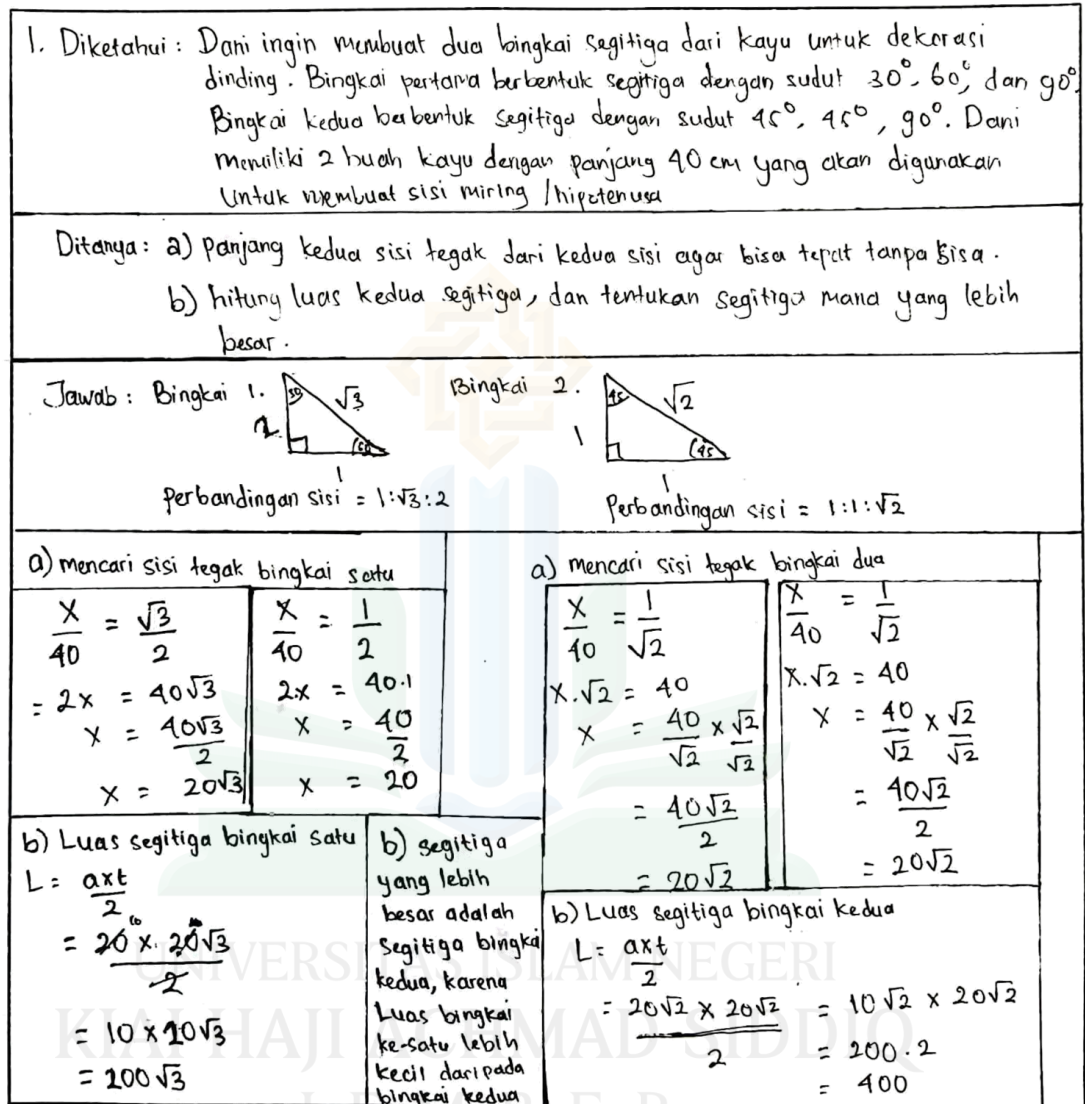 1. Diketahui : Dani ingin membuat dua bingkai segitiga dari kayu untuk dekorasi
dinding. Bingkai pertama berbentuk segitiga dengan sudut 30°, 60°, dan 90°.
Bingkai kedua berbentuk segitiga dengan sudut 45°, 45°, 90°. Dani
memiliki 2 buah kayu dengan panjang 40 cm yang akan digunakan
Untuk membuat sisi miring / hipotenusa
Ditanya : a) panjang kedua sisi tegak dari kedua sisi agar bisa tepat tanpa sisa.
b) hitung luas kedua segitiga, dan tentukan segitiga mana yang lebih
besar.
Jawab : Bingkai 1.
30
√3
2
60
1
Perbandingan sisi = 1:√3:2
Bingkai 2.
45
√2
1
45
1
Perbandingan sisi = 1:1:√2
a) mencari sisi tegak bingkai satu
x/40 = √3/2
= 2x = 40√3
x = 40√3/2
x = 20√3
x/40 = 1/2
2x = 40.1
x = 40/2
x = 20
a) mencari sisi tegak bingkai dua
x/40 = 1/√2
x.√2 = 40
x = 40/√2 x √2/√2
= 40√2/2
= 20√2
x/40 = 1/√2
x.√2 = 40
x = 40/√2 x √2/√2
= 40√2/2
= 20√2
b) Luas segitiga bingkai satu
L = axt/2
= 20 x 20√3/2
= 10 x 20√3
= 200√3
b) segitiga
yang lebih
besar adalah
segitiga bingkai
kedua, karena
Luas bingkai
ke-satu lebih
kecil daripada
bingkai kedua
b) Luas segitiga bingkai kedua
L = axt/2
= 20√2 x 20√2/2 = 10√2 x 20√2
= 200.2
= 400
UNIVERSITAS ISLAM NEGERI
KIAI HAJI ACHMAD SIDDIQ
J E M B E R